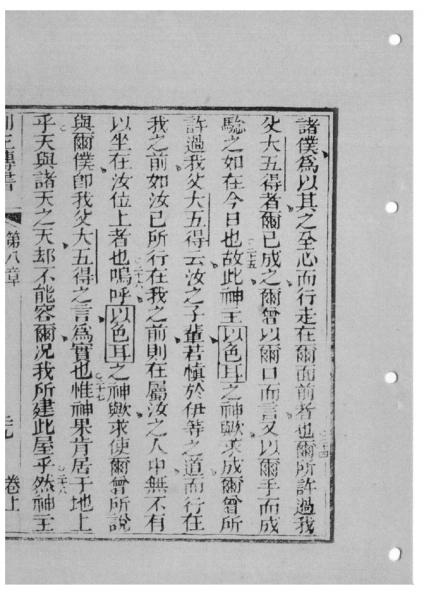 諸僕為以其之至心而行走在爾面前者也爾所許過我
父大五得者爾已成之爾曾以爾口而言又以爾手而成
驗之如在今日也故此神王以色耳之神歟求成爾曾所
許過我父大五得云汝之子輩若慎於伊等之道而行在
我之前如汝已所行在我之前則在屬汝之人中無不有
以坐在汝位上者也嗚呼以色耳之神歟求使爾曾所說
與爾僕即我父大五得之言為實也惟神果肯居于地上
乎天與諸天之天却不能容爾况我所建此屋乎然神王
列王傳書
第八章
卷上
○二十四
○二十五
○二十六
○二十七
○二十八